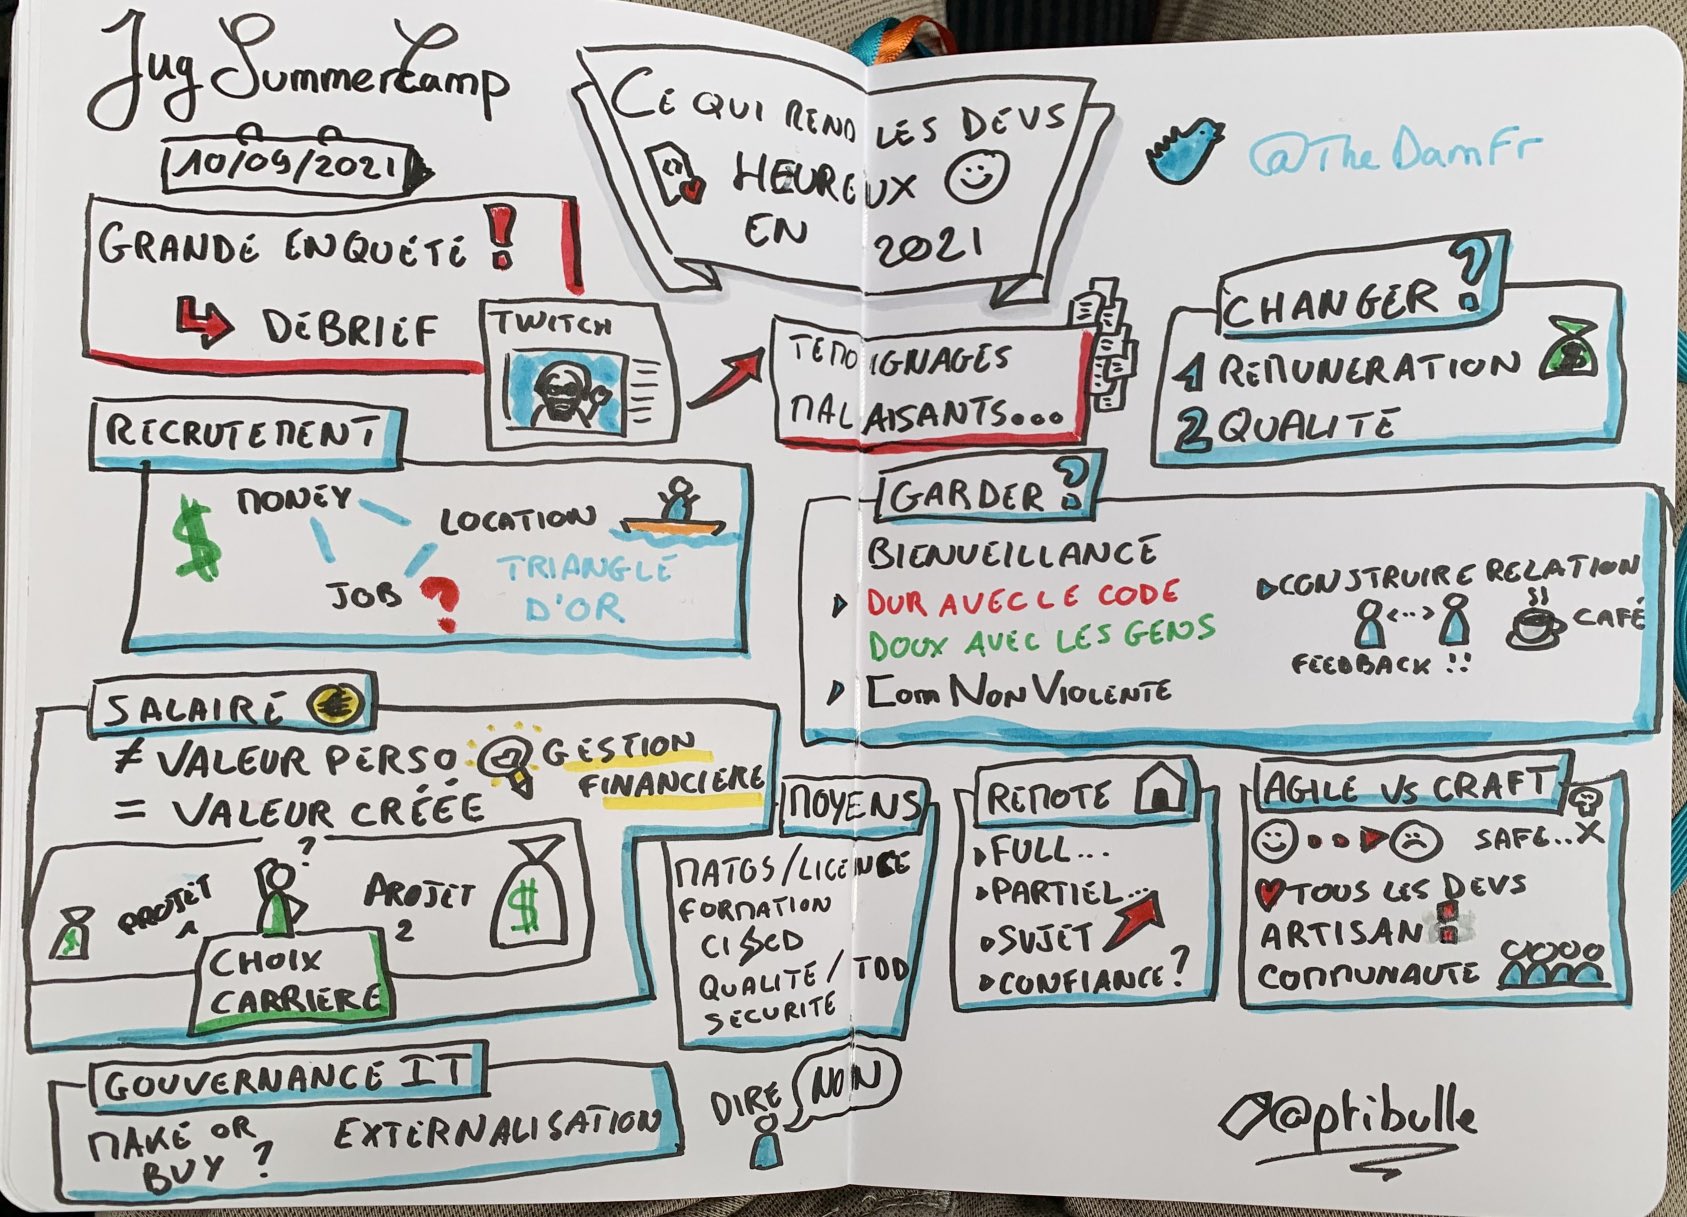 Jug SummerCamp
10/09/2021
CE QUI REND LES DEVS
HEUREUX
EN 2021
@TheDamFr
GRANDE ENQUÊTE !
DÉBRIEF
TWITCH
TEMOIGNAGES
MALAISANTS...
CHANGER ?
1 REMUNERATION
$
2 QUALITÉ
RECRUTEMENT
$
MONEY
LOCATION
JOB ?
TRIANGLE
D'OR
GARDER ?
BIENVEILLANCE
DUR AVEC LE CODE
DOUX AVEC LES GENS
COM NON VIOLENTE
CONSTRUIRE RELATION
CAFÉ
FEEDBACK !!
SALAIRE
≠ VALEUR PERSO
= VALEUR CRÉÉE
GESTION
FINANCIERE
$
PROJET
1
?
PROJET
2
$
CHOIX
CARRIERE
MOYENS
MATOS/LICENCE
FORMATION
CI CD
QUALITE/TDD
SECURITE
REMOTE
FULL...
PARTIEL...
SUJET
CONFIANCE ?
AGILE VS CRAFT
SAFE...X
TOUS LES DEVS
ARTISAN
COMMUNAUTE
GOUVERNANCE IT
MAKE OR
BUY ?
EXTERNALISATION
DIRE NON
@ptibulle